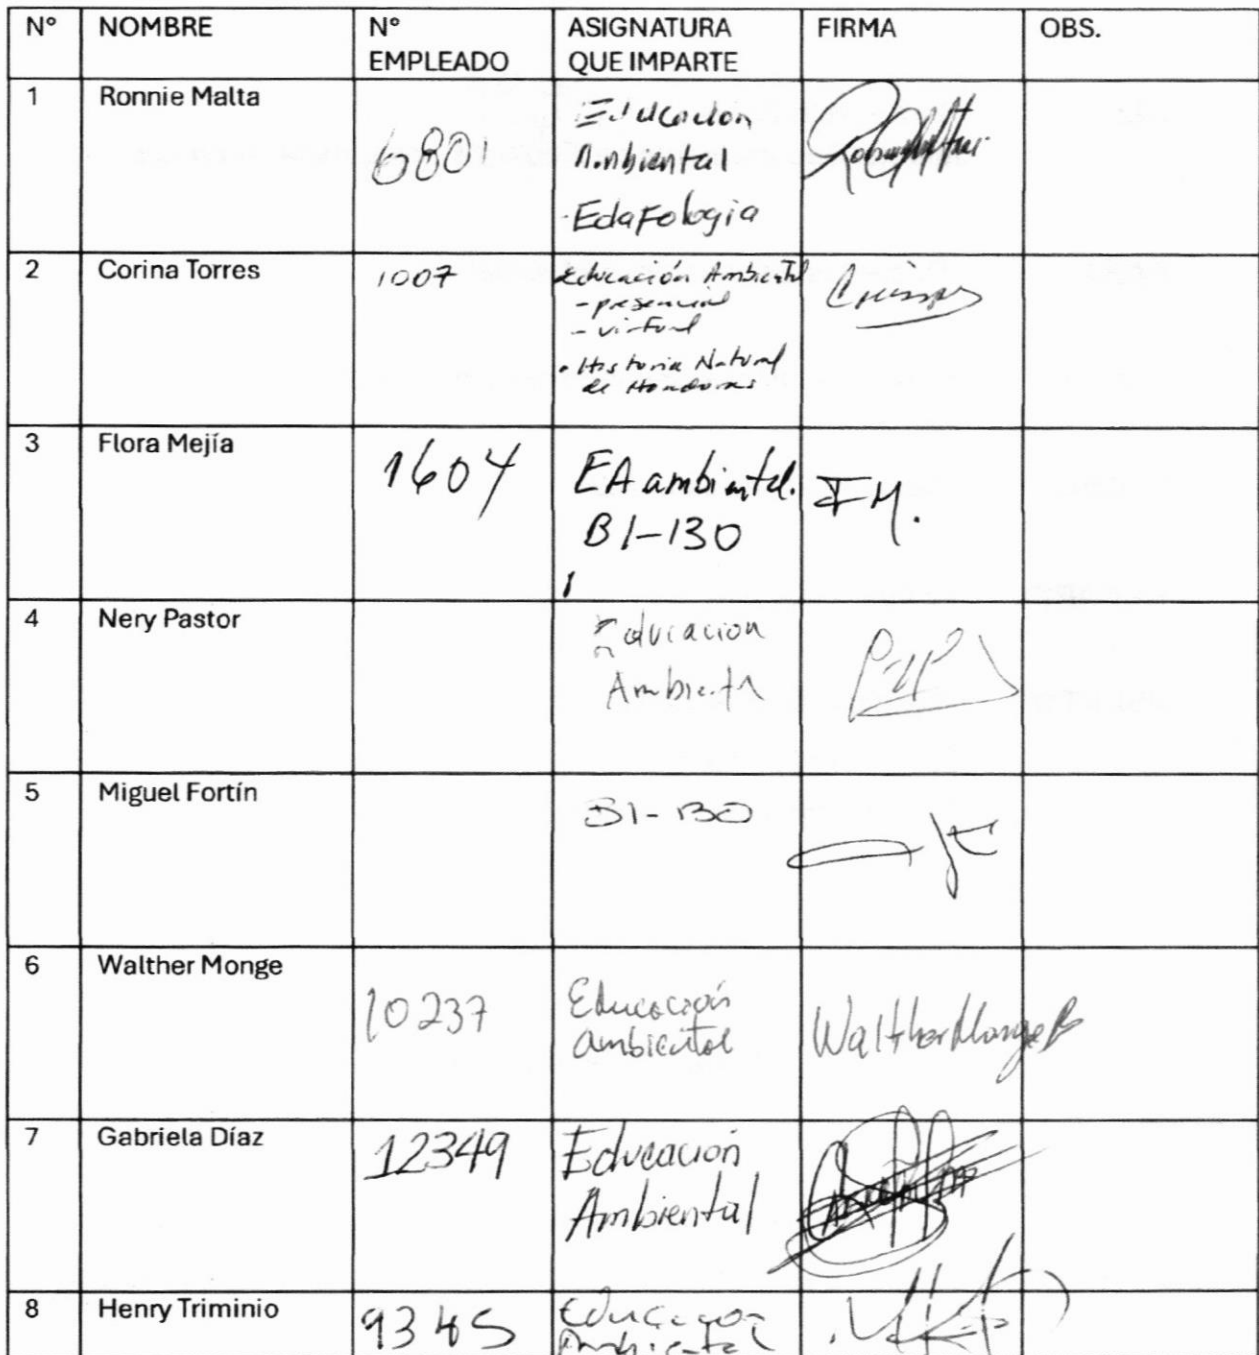 N° NOMBRE N° EMPLEADO ASIGNATURA QUE IMPARTE FIRMA OBS.
1 Ronnie Malta 6801 Educación
Ambiental
-Edafología
2 Corina Torres 1007 Educación Ambiental
- presencial
- virtual
• Historia Natural
de Honduras
3 Flora Mejía 1604 EA ambiental. FM.
BI-130
4 Nery Pastor Educacion
Ambienta
5 Miguel Fortín BI-130
6 Walther Monge 10237 Educación Walther Monge B
ambiental
7 Gabriela Díaz 12349 Educación
Ambiental
8 Henry Triminio 9345 Educacion
Ambiental